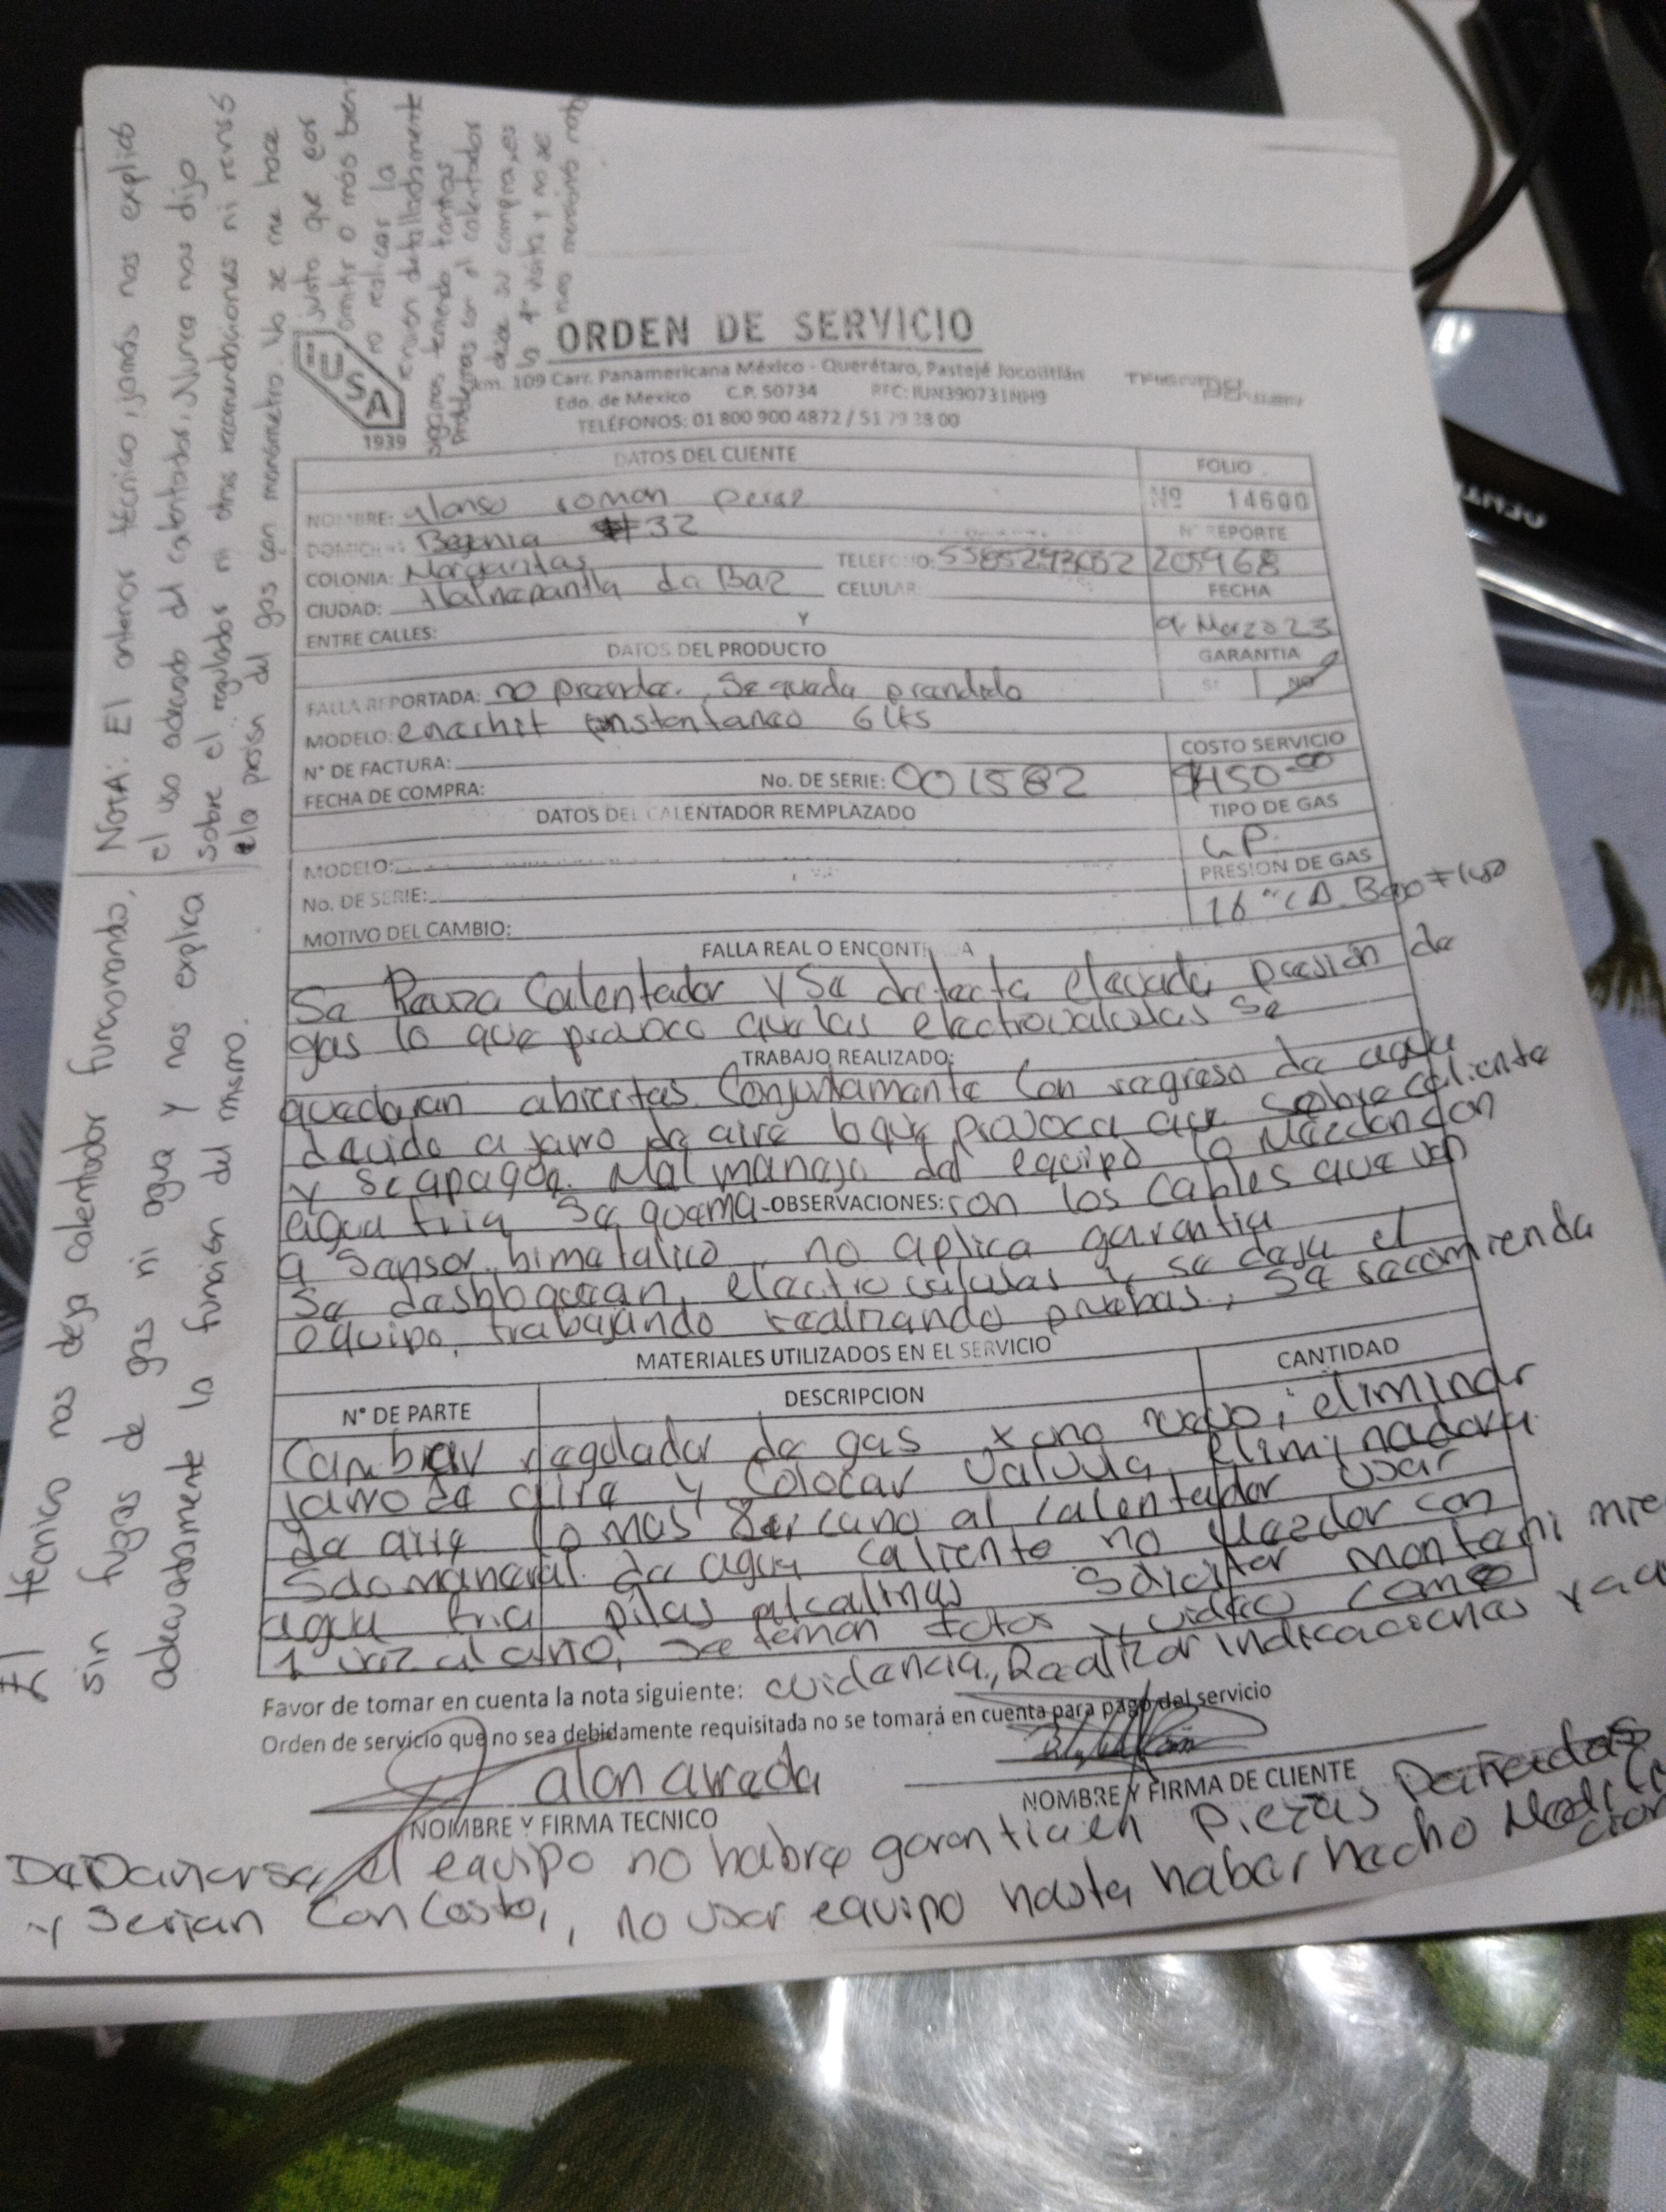 ORDEN DE SERVICIO
IUSA
1939
km. 109 Carr. Panamericana México - Querétaro, Pastejé Jocotitlán
Edo. de Mexico C.P. 50734 RFC: IUN390731NH9
TELÉFONOS: 01 800 900 4872 / 51 79 28 00
DATOS DEL CLIENTE
FOLIO
Nº 14600
NOMBRE: alonso roman perez
DOMICILIO: Begonia #32
Nº REPORTE
COLONIA: Margaritas TELEFONO: 5585293032 205968
CIUDAD: tlalnepantla da Baz CELULAR:
FECHA
ENTRE CALLES: Y
9 Marzo 23
DATOS DEL PRODUCTO
GARANTIA
SI NO
FALLA REPORTADA: no pranda. Se queda prandido
MODELO: enershit instantaneo 6 Lts
COSTO SERVICIO
N° DE FACTURA:
FECHA DE COMPRA: No. DE SERIE: 001582 $450.00
DATOS DEL CALENTADOR REMPLAZADO
TIPO DE GAS
L.P.
MODELO:
PRESION DE GAS
No. DE SERIE:
16 "CA. Bajo Flujo
MOTIVO DEL CAMBIO:
FALLA REAL O ENCONTRADA
Se Reviza Calentador y Se detecta elevada presión de
gas lo que provoco que las electrovalvulas se
TRABAJO REALIZADO:
quedaran abiertas. Conjuntamente con regreso de agua
devido a jarro de aire lo que provoca que sobrecaliente
y se apague. Mal manejo del equipo lo Mezclan con
agua fria Se quema-OBSERVACIONES: ron los cables que van
a Sensor bimetalico no aplica garantia
Se desbloquean electrovalvulas y se deja el
equipo trabajando realizando pruebas, Se recomienda
MATERIALES UTILIZADOS EN EL SERVICIO
N° DE PARTE DESCRIPCION CANTIDAD
Cambiar regulador de gas x uno nuevo, eliminar
jarro de aire y Colocar Valvula eliminadora
de aire lo mas Sercano al calentador usar
Solo maneral de agua caliente no Mezclar con
agua fria pilas alcalinas Solicitar mantenimie
1 vez al año, se toman fotos y video como
Favor de tomar en cuenta la nota siguiente: evidencia, Realizar indicaciones ya que
Orden de servicio que no sea debidamente requisitada no se tomará en cuenta para pago del servicio
alan
NOMBRE Y FIRMA TECNICO
NOMBRE Y FIRMA DE CLIENTE
De Dañarse el equipo no habra garantia en Piezas Dañadas
y Serian Con Costo, no usar equipo hasta haber hecho Modifica
cion
El técnico nos deja calentador funcionando,
sin fugas de gas ni agua y nos explica
adecuadamente la función del mismo.
NOTA: El anterior técnico, jamás nos explicó
el uso adecuado del calentador, Nunca nos dijo
sobre el regulador ni otras recomendaciones ni revisó
la presión del gas con manómetro. No se me hace
justo que por
omitir o más bien
no realizar la
revisión detalladamente
sigamos teniendo tantos
Problemas con el calentador
desde su compra, es
la 4° visita y no se
nos mencionó nada